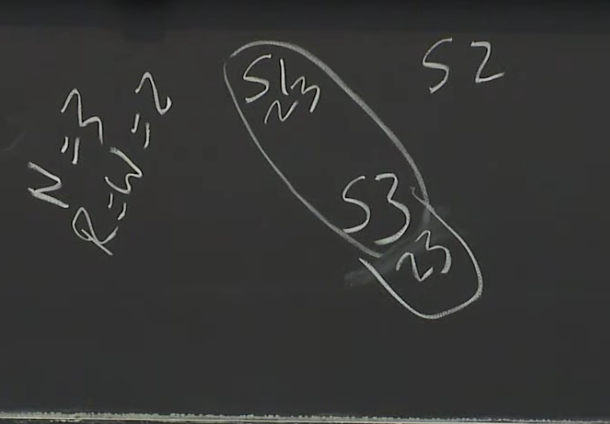 N=3
R=W=2
S1
23
S2
S3
23